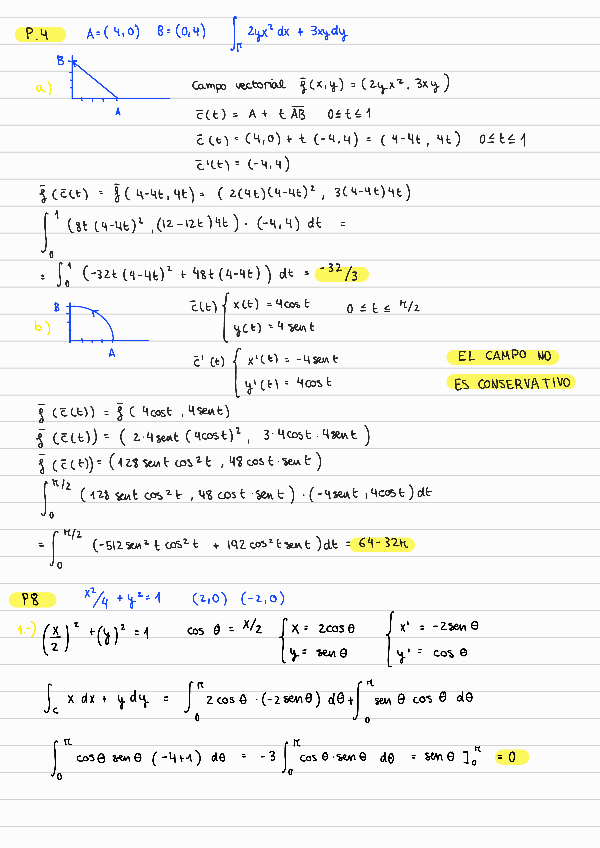 P.4 A=(4,0) B=(0,4) ∫_Γ 2yx² dx + 3xy dy
a) B A
Campo vectorial f̄(x,y) = (2yx², 3xy)
c̄(t) = A + t AB̅ 0≤t≤1
c̄(t) = (4,0) + t (-4,4) = (4-4t, 4t) 0≤t≤1
c̄'(t) = (-4,4)
f̄(c̄(t) = f̄(4-4t, 4t) = (2(4t)(4-4t)², 3(4-4t)4t)
∫₀¹ (8t(4-4t)², (12-12t)4t) · (-4,4) dt =
= ∫₀¹ (-32t(4-4t)² + 48t(4-4t)) dt = -32/3
b) B A
c̄(t) { x(t) = 4cost 0 ≤ t ≤ π/2
y(t) = 4 sent
c̄'(t) { x'(t) = -4sent
y'(t) = 4cost
EL CAMPO NO
ES CONSERVATIVO
f̄(c̄(t)) = f̄(4cost, 4sent)
f̄(c̄(t)) = (2·4sent(4cost)², 3·4cost·4sent)
f̄(c̄(t)) = (128 sent cos²t, 48 cost·sent)
∫₀^π/2 (128 sent cos²t, 48 cost·sent) · (-4sent, 4cost) dt
= ∫₀^π/2 (-512 sen²t cos²t + 192 cos²t sent) dt = 64-32π
P8 x²/4 + y² = 1 (2,0) (-2,0)
1.-) (x/2)² + (y)² = 1 cos θ = x/2 { x = 2cos θ { x' = -2sen θ
y = sen θ y' = cos θ
∫_C x dx + y dy = ∫₀^π 2 cos θ · (-2sen θ) dθ + ∫₀^π sen θ cos θ dθ
∫₀^π cos θ sen θ (-4+1) dθ = -3 ∫₀^π cos θ · sen θ dθ = sen θ ]₀^π = 0